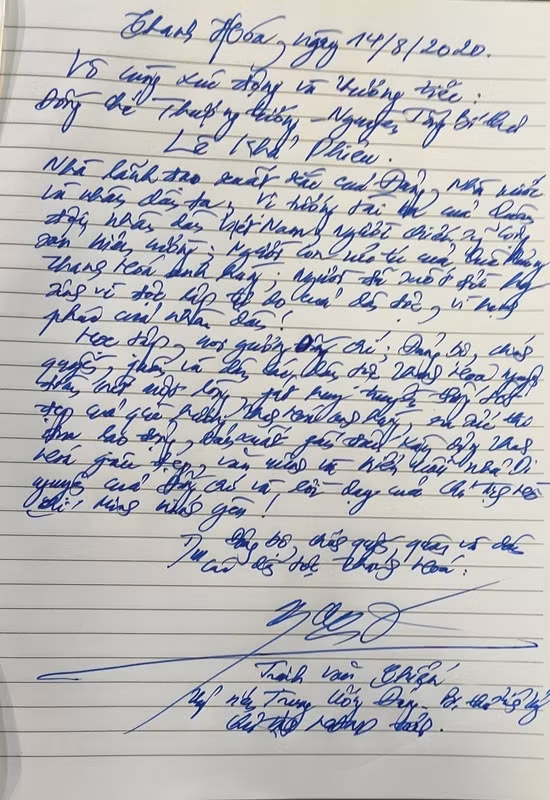 Thanh Hóa, ngày 14/8/2020.
Vô cùng xúc động và thương tiếc:
Đồng chí Thượng tướng - Nguyên Tổng Bí thư
Lê Khả Phiêu.
Nhà lãnh đạo xuất sắc của Đảng, Nhà nước
và nhân dân ta; Vị tướng tài ba của Quân
đội nhân dân Việt Nam, người chiến sỹ cộng
sản kiên cường; Người con ưu tú của quê hương
Thanh Hóa anh hùng; Người đã suốt đời hy
sinh vì độc lập tự do của dân tộc, vì hạnh
phúc của nhân dân!
Học tập, noi gương đồng chí; Đảng bộ, chính
quyền, quân và dân các dân tộc Thanh Hóa nguyện
đoàn kết một lòng, phát huy truyền thống tốt
đẹp của quê hương Thanh Hóa anh hùng, ra sức thi
đua lao động, sản xuất, phấn đấu xây dựng Thanh
Hóa giàu đẹp, văn minh và kiểu mẫu như Di
nguyện của đồng chí và lời dạy của Chủ tịch Hồ
Chí Minh
T/M Đảng bộ, chính quyền, quân và dân
các dân tộc Thanh Hóa:
Trịnh Văn Chiến
Uỷ viên Trung ương Đảng - Bí thư Tỉnh ủy
Chủ tịch HĐND tỉnh.